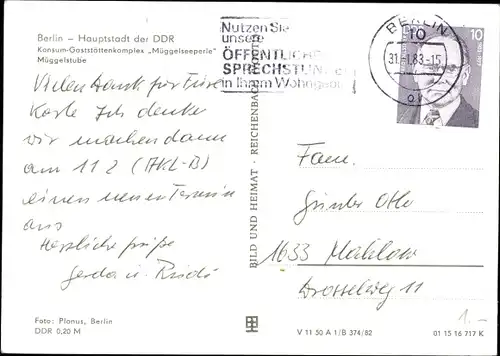 Berlin – Hauptstadt der DDR
Konsum-Gaststättenkomplex „Müggelseeperle"
Müggelstube
Vielen Dank für Eure
Karte Ich denke
wir machen dann
am 11 2 (AKL-B)
einen neuen Termin
aus
Herzliche Grüße
Gerda u. Rudi
Foto: Planus, Berlin
DDR 0,20 M
BILD UND HEIMAT · REICHENBACH
Nutzen Sie
unsere
ÖFFENTLICHE
SPRECHSTUN
in Ihrem Wohngebi
BERLIN
31.-1.83-15
10
10
Fam.
Günter Otto
1633 Mahlow
Drosselweg 11
1.-
V 11 50 A 1/B 374/82
01 15 16 717 K